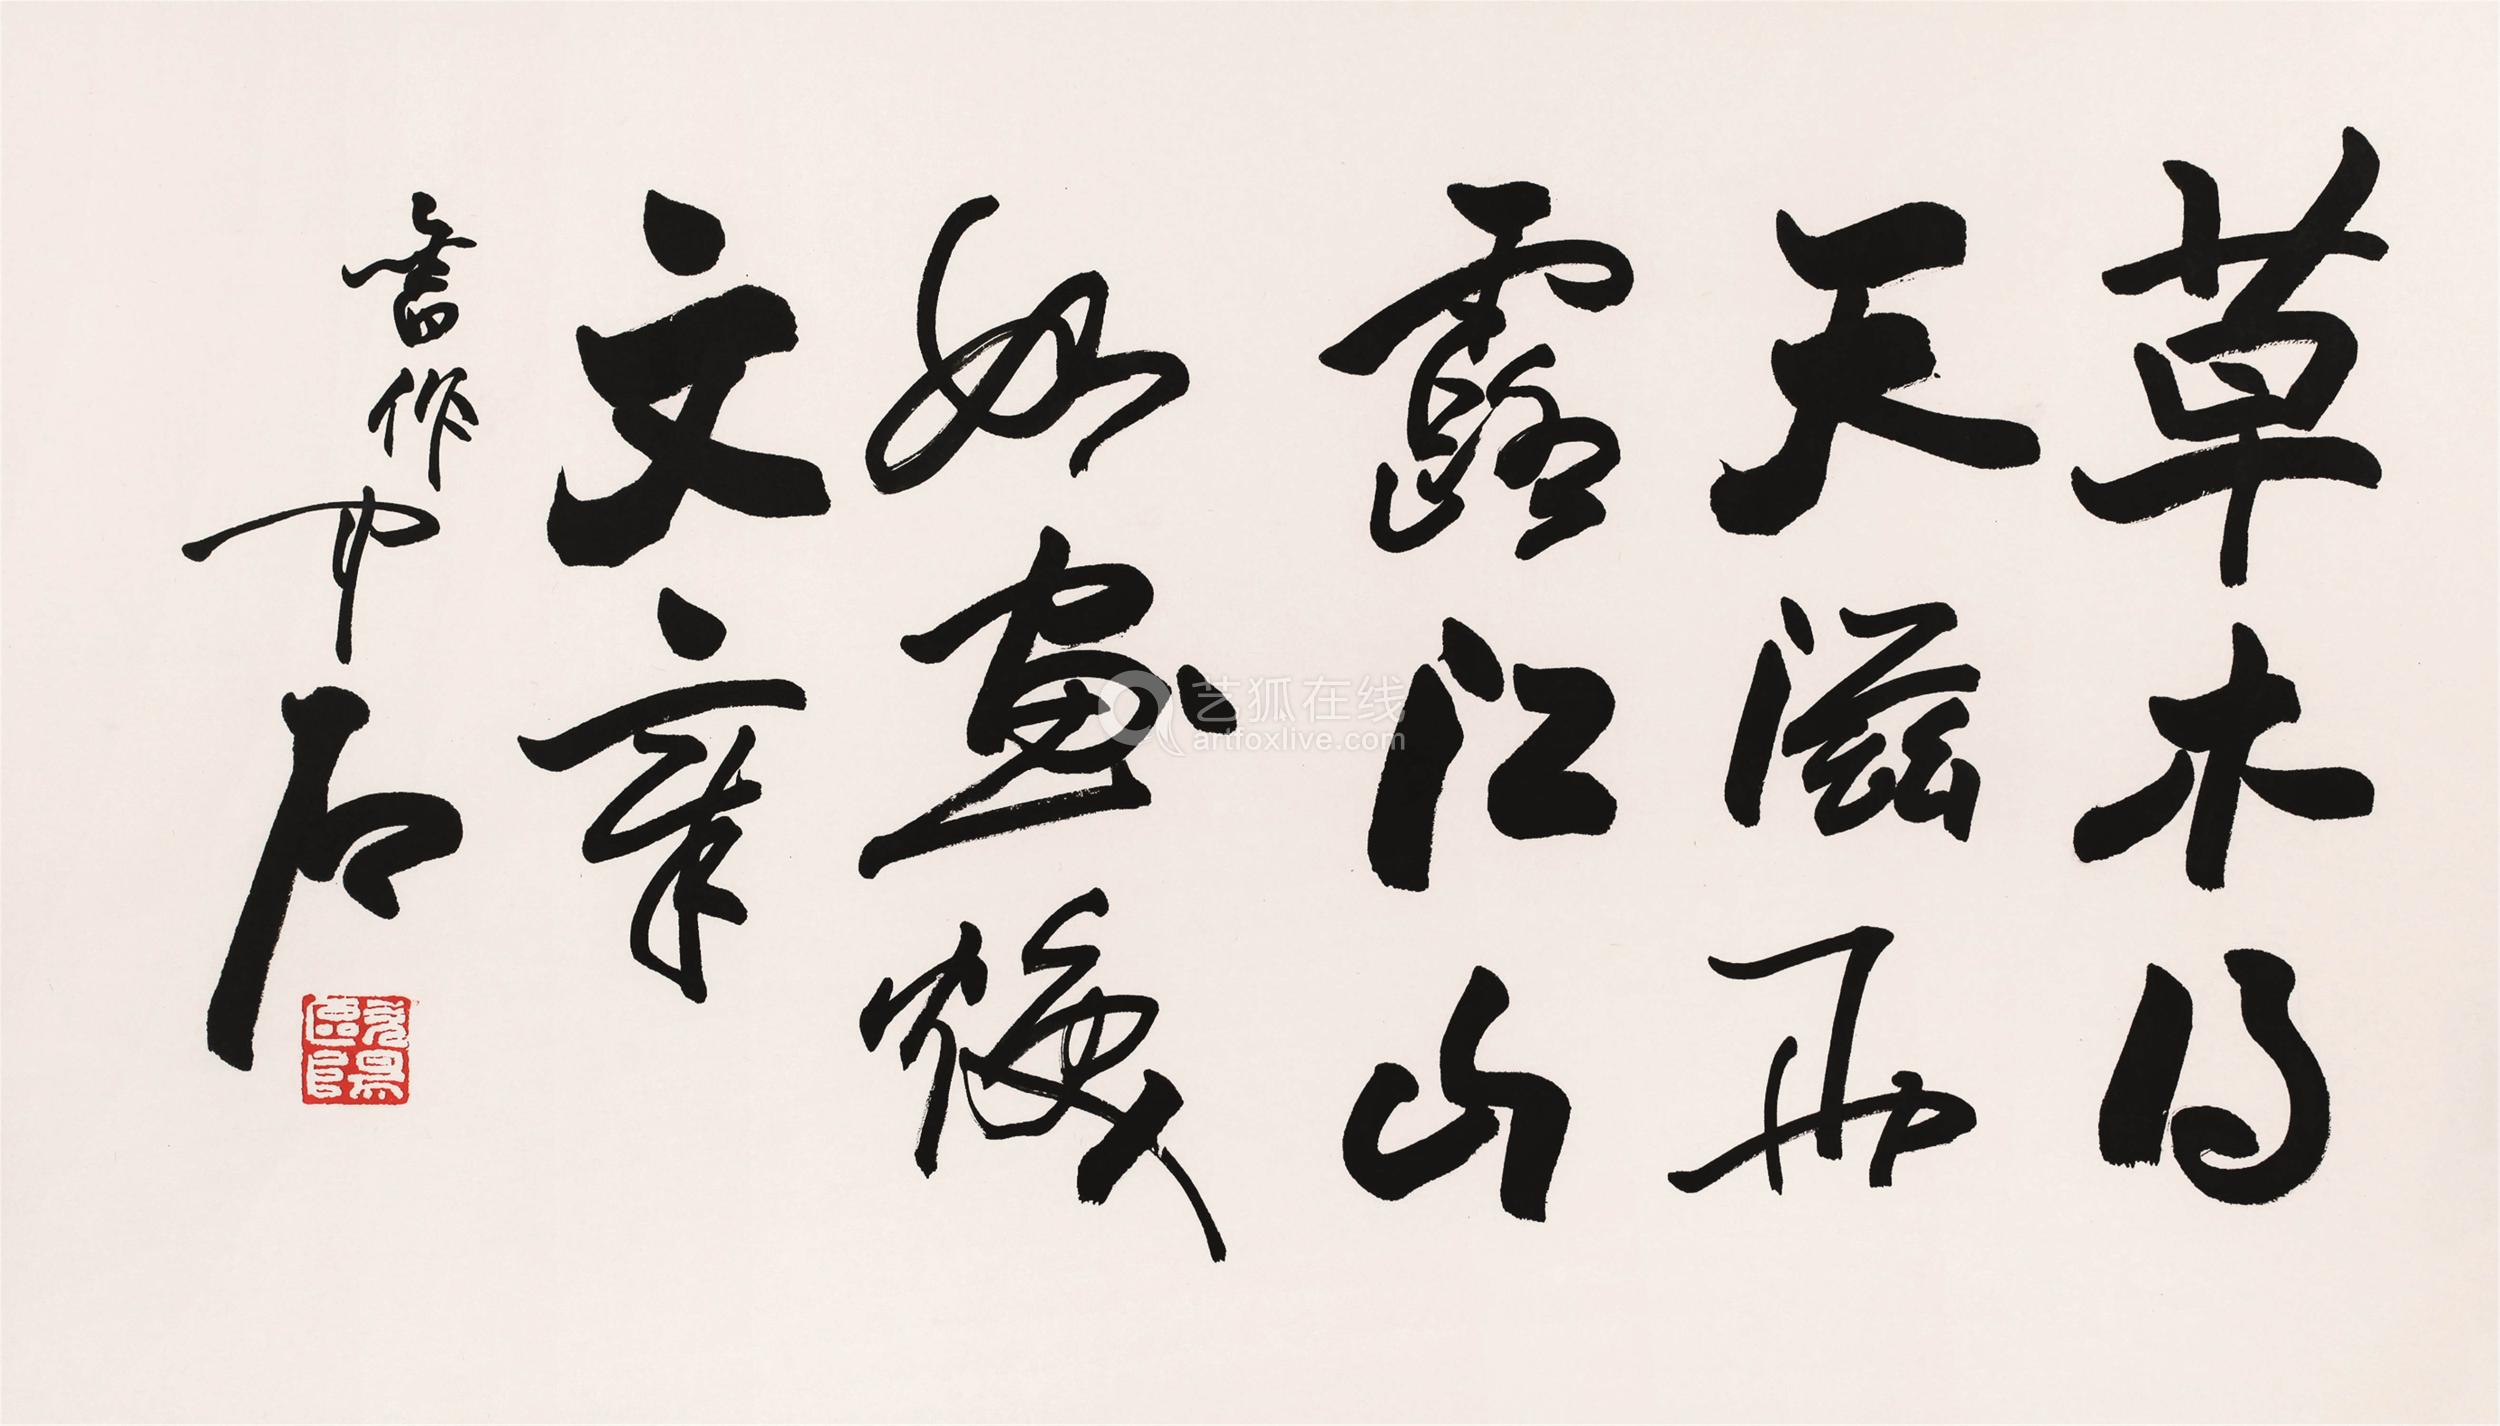 草木得
天滋雨
露江山
如画焕
文章
作中石
艺狐在线
artfoxlive.com